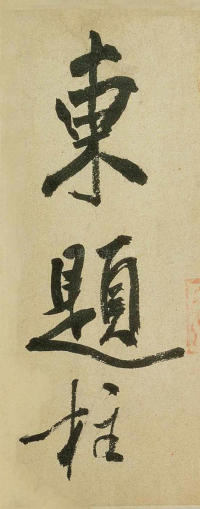 東題柱